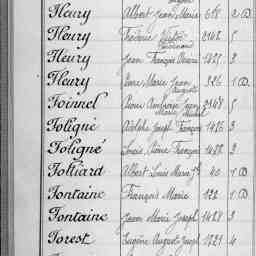 Fleury Albert Jean Marie 618 2 D
Fleury Frédéric Victor 2142 5
Fleury Jean François 1425 3
Fleury Pierre Marie Jean 326 1 D
Auguste
Foinnel Pierre Ambroise Jean 2148 5
Marie Michel
Foligné Adolphe Joseph François 1426 3
Foligné Louis Pierre François 1422 3
Folliard Albert Louis Marie 40 1 D
Fontaine François Marie 122 1 D
Fontaine Jean Marie Joseph 1428 3
Forest Eugène August Joseph 1221 4